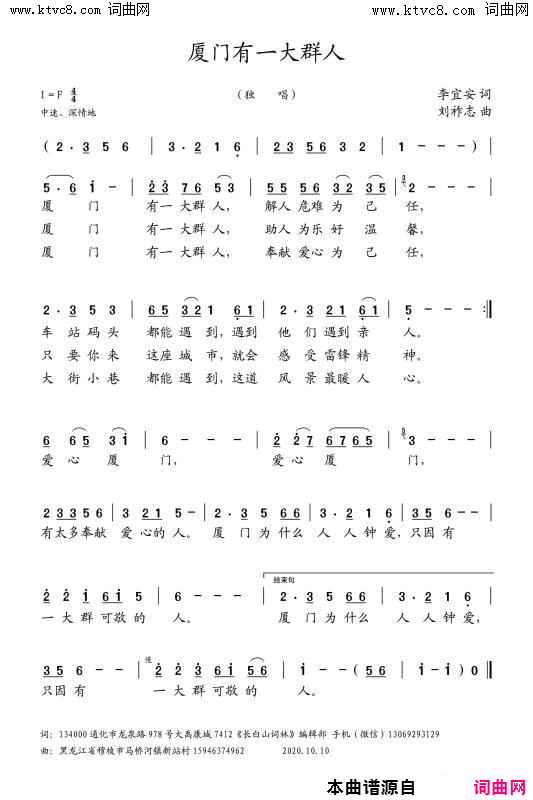 www.ktvc8.com 词曲网 www.ktvc8.com 词曲网
厦门有一大群人
1=F 4/4 （独 唱） 李宜安 词
中速、深情地 刘祚志 曲
( 2· 3 5 6 | 3· 2 1 6 | 2 3 5 6 3 2 | 1 - - - )|
5· 6 i - | 2 3 7 6 5 3 | 5 5 5 6 3 2 3 5 | 3 2 - - - |
厦 门 有一 大群 人， 解人 危难 为 己 任，
厦 门 有一 大群 人， 助人 为乐 好 温 馨，
厦 门 有一 大群 人， 奉献 爱心 为 己 任，
2· 3 5 3 | 6 5 3 2 1 6 1 | 2· 3 2 1 6 1 | 5 - - - :||
车 站 码 头 都能 遇 到，遇到 他 们 遇到 亲 人。
只 要 你 来 这座 城 市，就会 感 受 雷锋 精 神。
大 街 小 巷 都能 遇 到，这道 风 景 最暖 人 心。
6 6 5 3 i | 6 - - - | 2 2 7 6 7 6 5 | 5 3 - - - |
爱 心 厦 门， 爱 心 厦 门，
2 3 3 5 6 | 3 2 1 5 - | 2· 3 5 6 6 | 3· 2 1 6 | 3 5 6 - - |
有太多奉献 爱 心的 人。 厦 门 为 什么 人 人 钟 爱，只因 有
结束句
2 2 i 6 i 5 | 6 - - - | 2· 3 5 6 6 | 3· 2 1 6 |
一 大 群 可敬 的 人。 厦 门 为什么 人 人 钟 爱，
3 5 6 - - | 慢 2 2 3 6 i 5 6 | i - - - | i - ( 5 6 | i - i ) 0 ||
只因 有 一 大 群 可敬 的 人。
词：134000 通化市龙泉路 978 号大禹康城 7412《长白山词林》编辑部 手机（微信）13069293129
曲：黑龙江省穆棱市马桥河镇新站村 15946374962 2020.10.10
本曲谱源自 词曲网